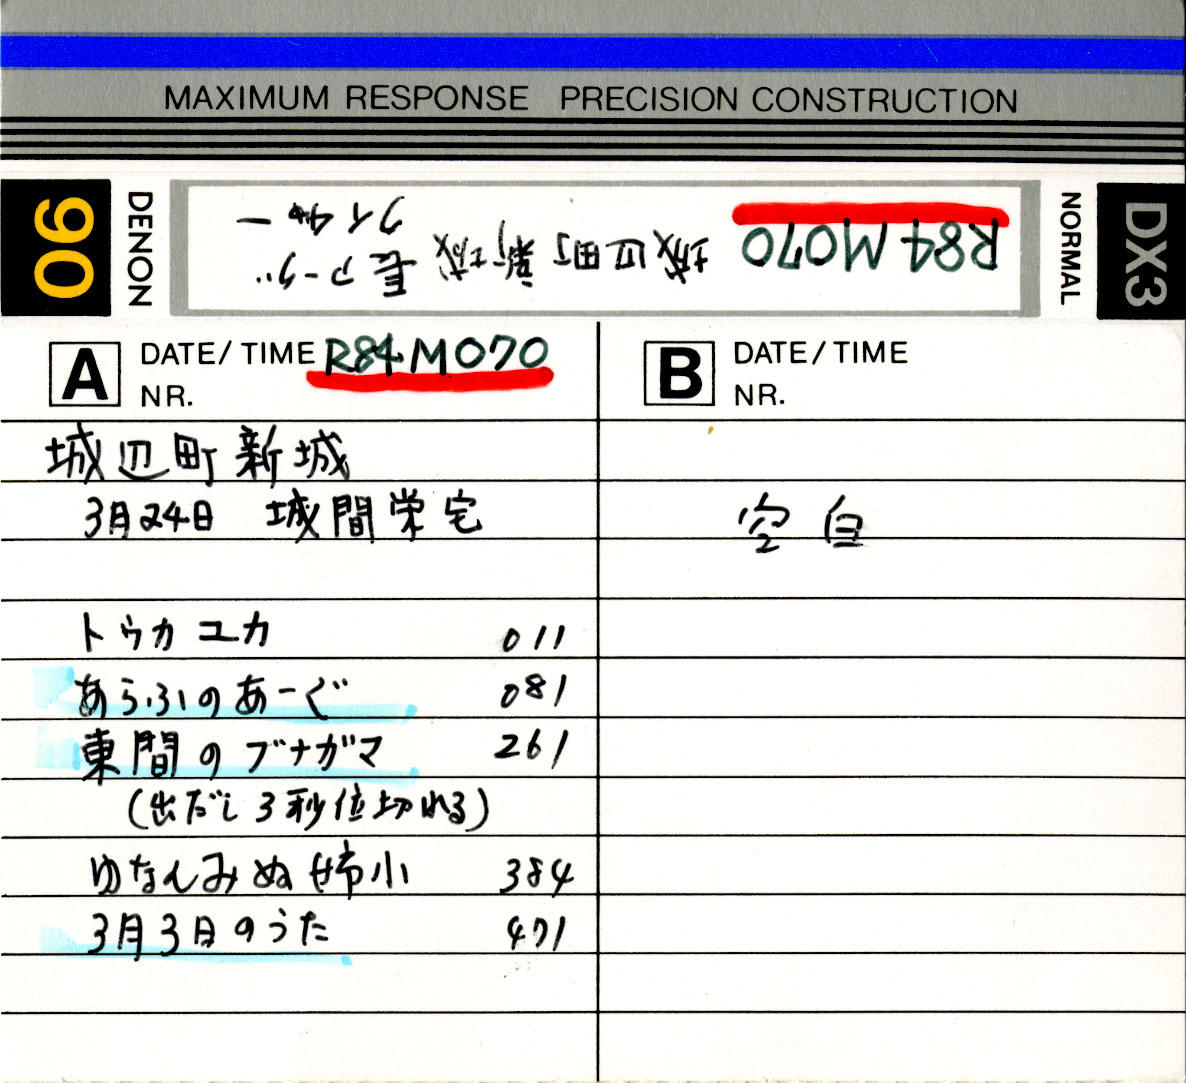 MAXIMUM RESPONSE PRECISION CONSTRUCTION
90
DENON
R84M070 城辺町新城 長アーグ
クイチャー
NORMAL
DX3
A DATE/TIME R84M070
NR.
城辺町新城
3月24日 城間栄宅
トゥカユカ 011
あらふのあーぐ 081
東間のブナガマ 261
(出だし3秒位切れる)
ゆなんみぬ姉小 384
3月3日のうた 471
B DATE/TIME
NR.
空白